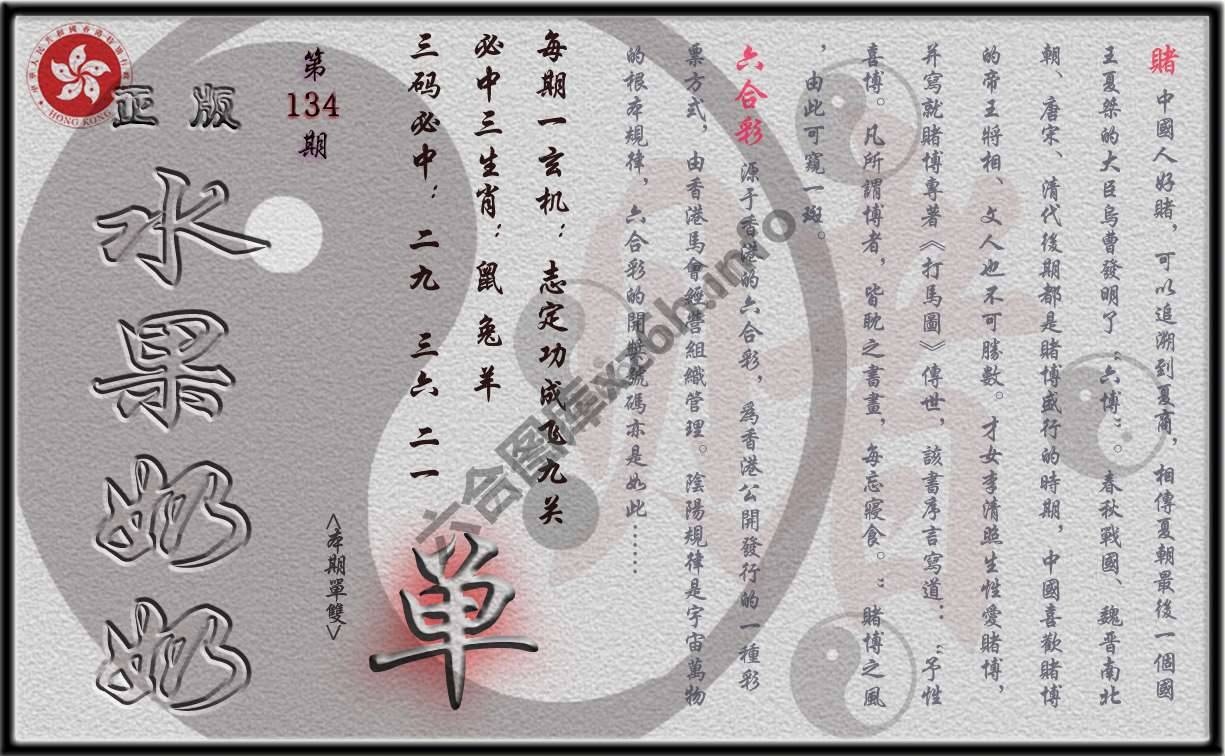 賭 中國人好賭，可以追溯到夏商，相傳夏朝最後一個國
王夏桀的大臣烏曹發明了“六博”。春秋戰國、魏晋南北
朝、唐宋、清代後期都是賭博盛行的時期，中國喜歡賭博
的帝王將相、文人也不可勝數。才女李清照生性愛賭博，
并寫就賭博專著《打馬圖》傳世，該書序言寫道：“予性
喜博。凡所謂博者，皆耽之書畫，每忘寢食。”賭博之風
，由此可窺一斑。
六合彩 源于香港的六合彩，爲香港公開發行的一種彩
票方式，由香港馬會經營組織管理。陰陽規律是宇宙萬物
的根本規律，六合彩的開獎號碼亦是如此……
每期一玄机：志定功成飞九关
必中三生肖：鼠 兔 羊
三码必中：二九 三六 二一
<本期單雙>
单
第
134
期
正版
水果奶奶
HONG KONG
六合图库xz6h.info